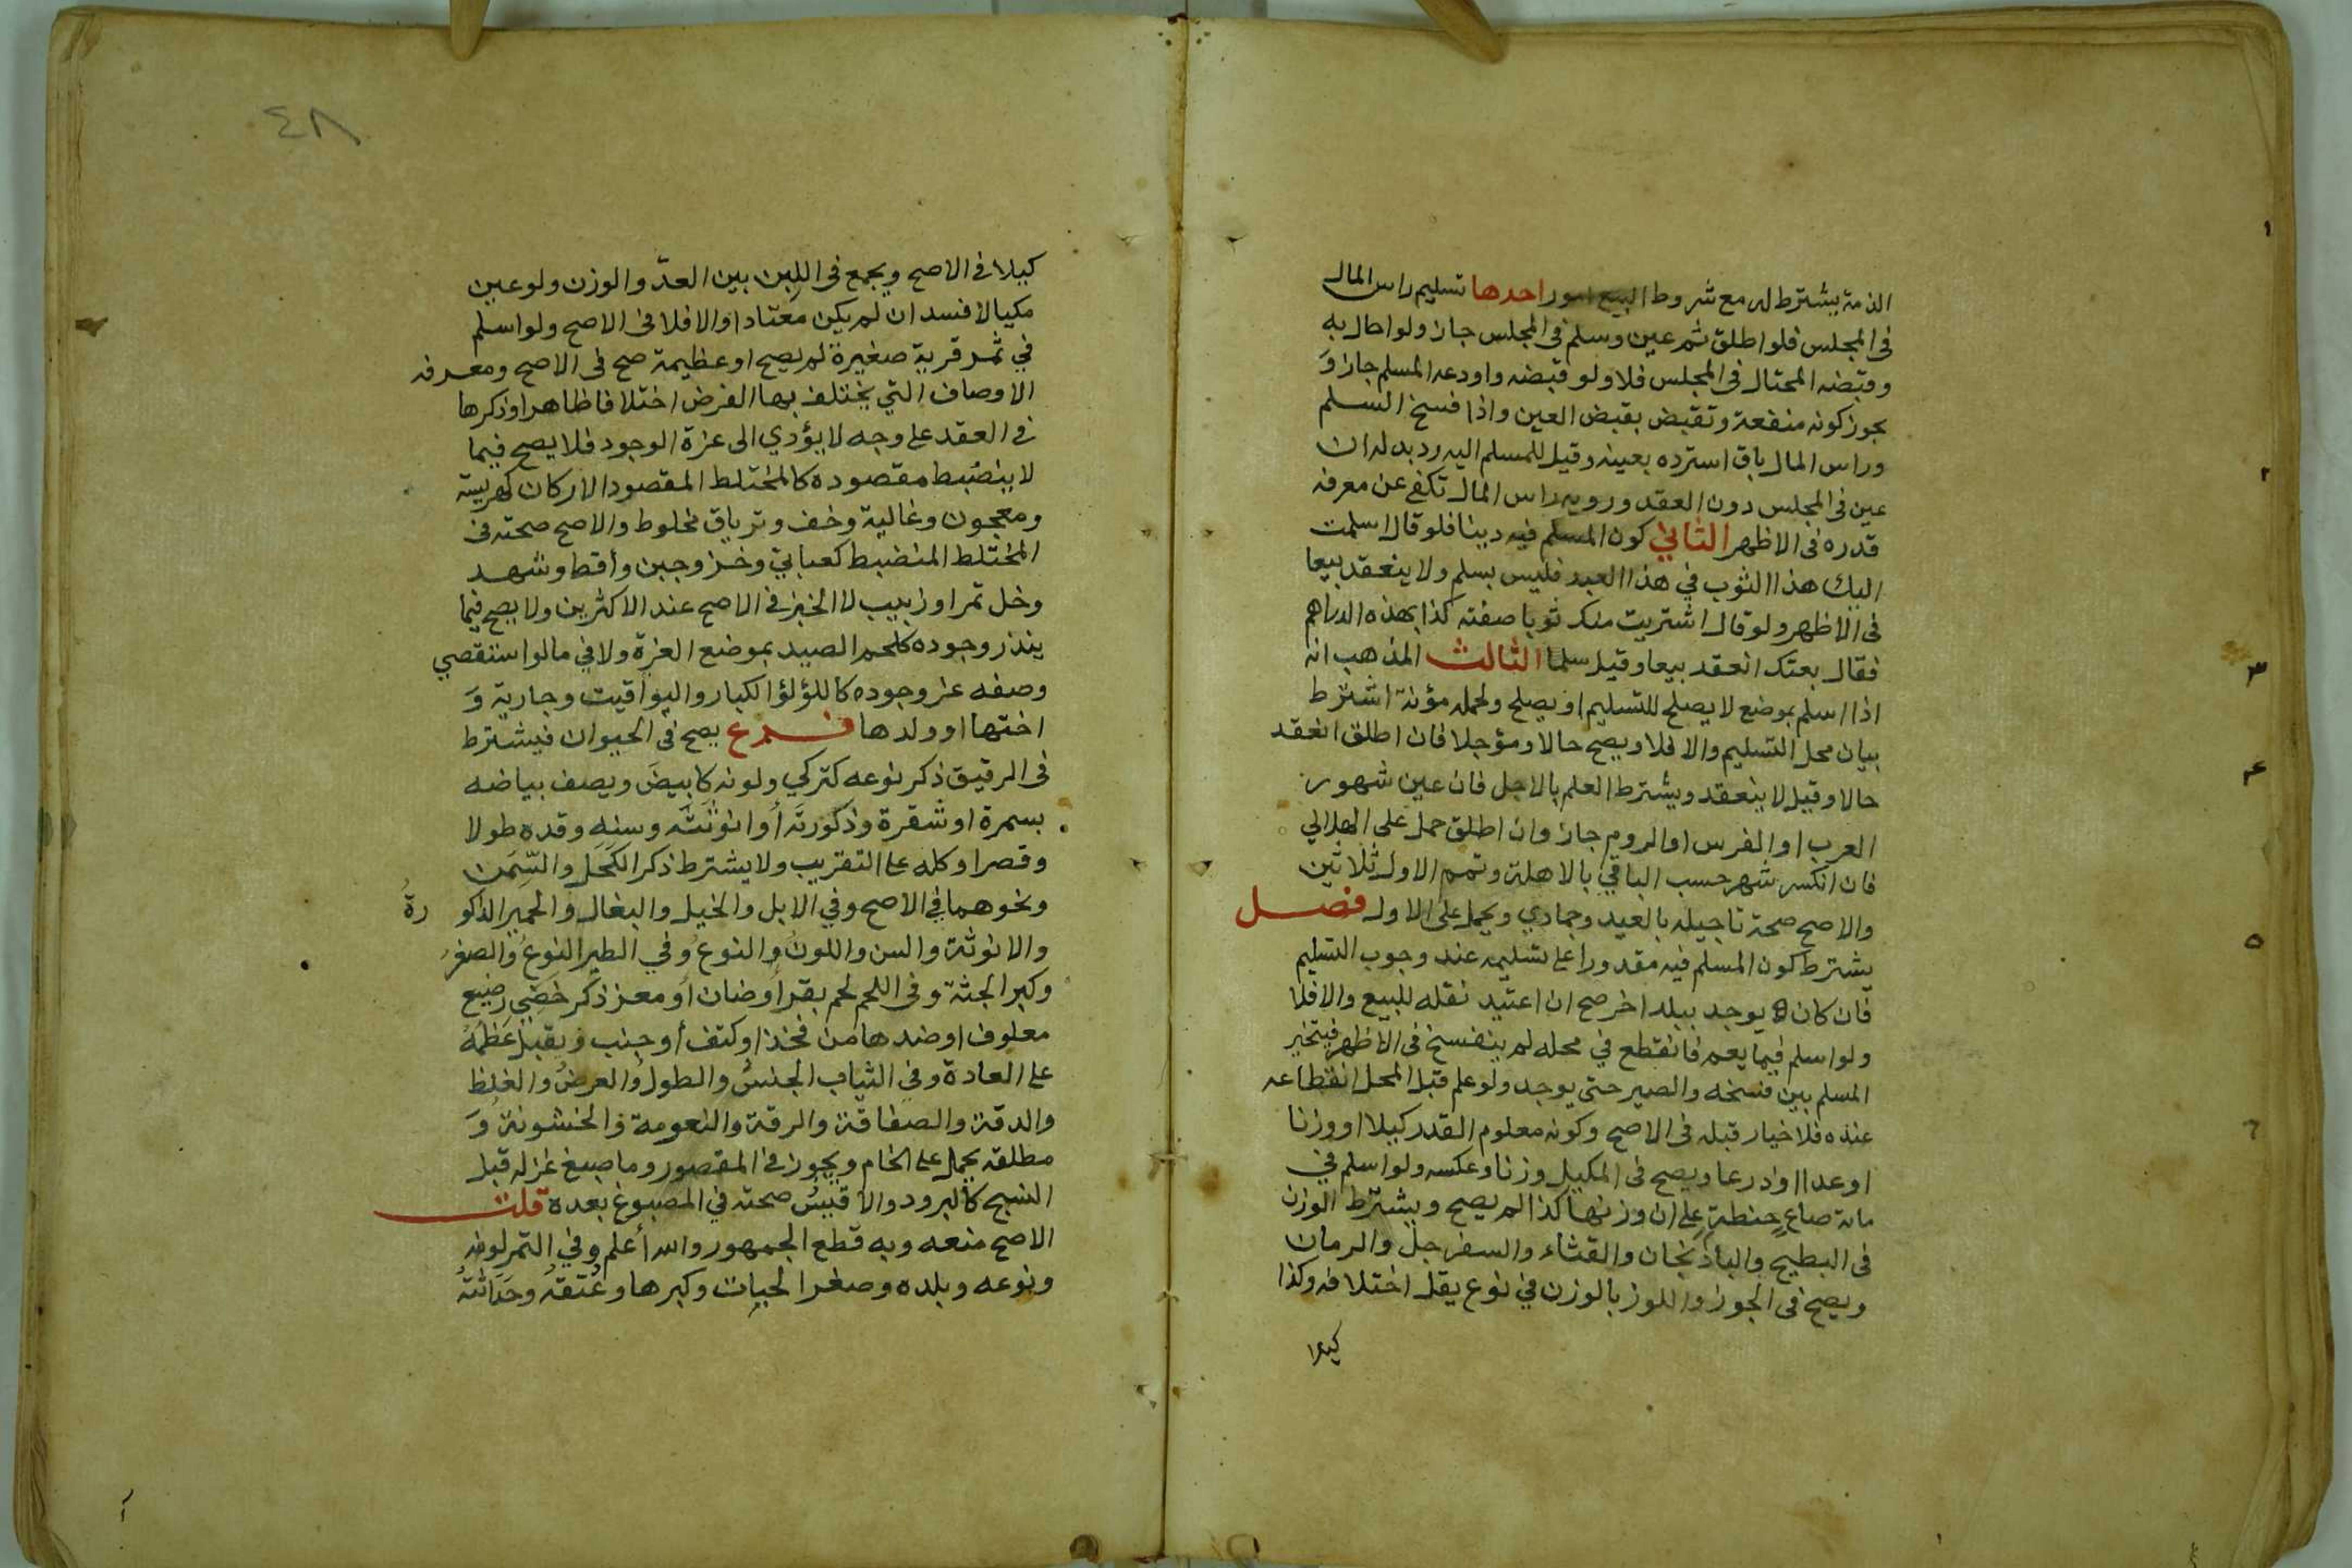 الذمة يشترط له مع شروط البيع امور احدها تسليم راس المال
فى المجلس فلو اطلق ثم عين وسلم فى المجلس جاز ولو احال به
وقبضه المحتال فى المجلس فلا ولو قبضه واودعه المسلم جاز وَ
يجوز كونه منفعة وتقبض بقبض العين واذا فسخ السلم
وراس المال باق استرده بعينه وقيل للمسلم اليه رد بدله ان
عين فى المجلس دون العقد ورويه راس المال تكفي عن معرفه
قدره فى الاظهر الثاني كون المسلم فيه دينا فلو قال اسلمت
اليك هذا الثوب في هذا العبد فليس بسلم ولا ينعقد بيعا
فى الاظهر ولو قال اشتريت منك ثوبا صفته كذا بهذه الدراهم
فقال بعتك انعقد بيعا وقيل سلما الثالث المذهب انه
اذا اسلم بموضع لا يصلح للتسليم او يصلح ولحمله مؤنة اشترط
بيان محل التسليم والا فلا ويصح حالا ومؤجلا فان اطلق انعقد
حالا وقيل لا ينعقد ويشترط العلم بالاجل فان عين شهور
العرب او الفرس او الروم جاز وان اطلق حمل على الهلالي
فان انكسر شهر حسب الباقي بالاهلة وتمم الاول ثلاثين
والاصح صحة تاجيله بالعيد وجمادي ويحمل على الاول فصل
يشترط كون المسلم فيه مقدورا على تسليمه عند وجوب التسليم
فان كان يوجد ببلد اخر صح ان اعتيد نقله للبيع والا فلا
ولو اسلم فيما يعم فانقطع في محله لم ينفسخ فى الاظهر فيتخير
المسلم بين فسخه والصبر حتى يوجد ولو علم قبل المحل انقطاعه
عنده فلا خيار قبله فى الاصح وكونه معلوم القدر كيلا او وزنا
او عدا او ذرعا ويصح فى المكيل وزنا وعكسه ولو اسلم في
مائة صاع حنطة على ان وزنها كذا لم يصح ويشترط الوزن
فى البطيخ والباذنجان والقثاء والسفرجل والرمان
ويصح فى الجوز واللوز بالوزن في نوع يقل اختلافه وكذا
كيلا
٤٨
كيلا فى الاصح ويجمع فى اللبن بين العدّ والوزن ولو عين
مكيالا فسد ان لم يكن معتادا والا فلا فى الاصح ولو اسلم
في ثمر قرية صغيرة لم يصح او عظيمة صح فى الاصح ومعرفه
الاوصاف التي يختلف بها الغرض اختلافا ظاهرا وذكرها
فى العقد على وجه لا يؤدي الى عزة الوجود فلا يصح فيما
لا ينضبط مقصوده كالمختلط المقصود الاركان كهريسة
ومعجون وغالية وخف وترياق مخلوط والاصح صحته فى
المختلط المنضبط كعتابي وخز وجبن وأقط وشهد
وخل تمر او زبيب لا الخبز فى الاصح عند الاكثرين ولا يصح فيما
يندر وجوده كلحم الصيد بموضع العزة ولا في ما لو استقصي
وصفه عز وجوده كاللؤلؤ الكبار واليواقيت وجارية وَ
اختها او ولدها فرع يصح فى الحيوان فيشترط
فى الرقيق ذكر نوعه كتركي ولونه كابيض ويصف بياضه
بسمرة او شقرة وذكورته أو انوثته وسنه وقده طولا
وقصرا وكله على التقريب ولا يشترط ذكر الكحل والسِّمَن
ونحوهما في الاصح وفي الابل والخيل والبغال والحمير الذكورةُ
والانوثة والسن واللونُ والنوعُ وفي الطير النوعُ والصغر
وكبر الجثة وفى اللحم لحم بقر أو ضان أو معز ذكر خصي رضيع
معلوف او ضدها من فخذ او كتف أو جنب ويقبل عَظْمُهُ
على العادة وفي الثياب الجنسُ والطولُ والعرضُ والغلظ
والدقة والصفاقة والرقة والنعومة والخشونة وَ
مطلقه يحمل على الخام ويجوز فى المقصور وما صبغ غزله قبل
النسج كالبرود والاقيسُ صحته في المصبوغ بعده قلت
الاصح منعه وبه قطع الجمهور والله أعلم وفي التمر لونه
ونوعه وبلده وصغر الحبات وكبرها وعُتقه وحَدَاثته